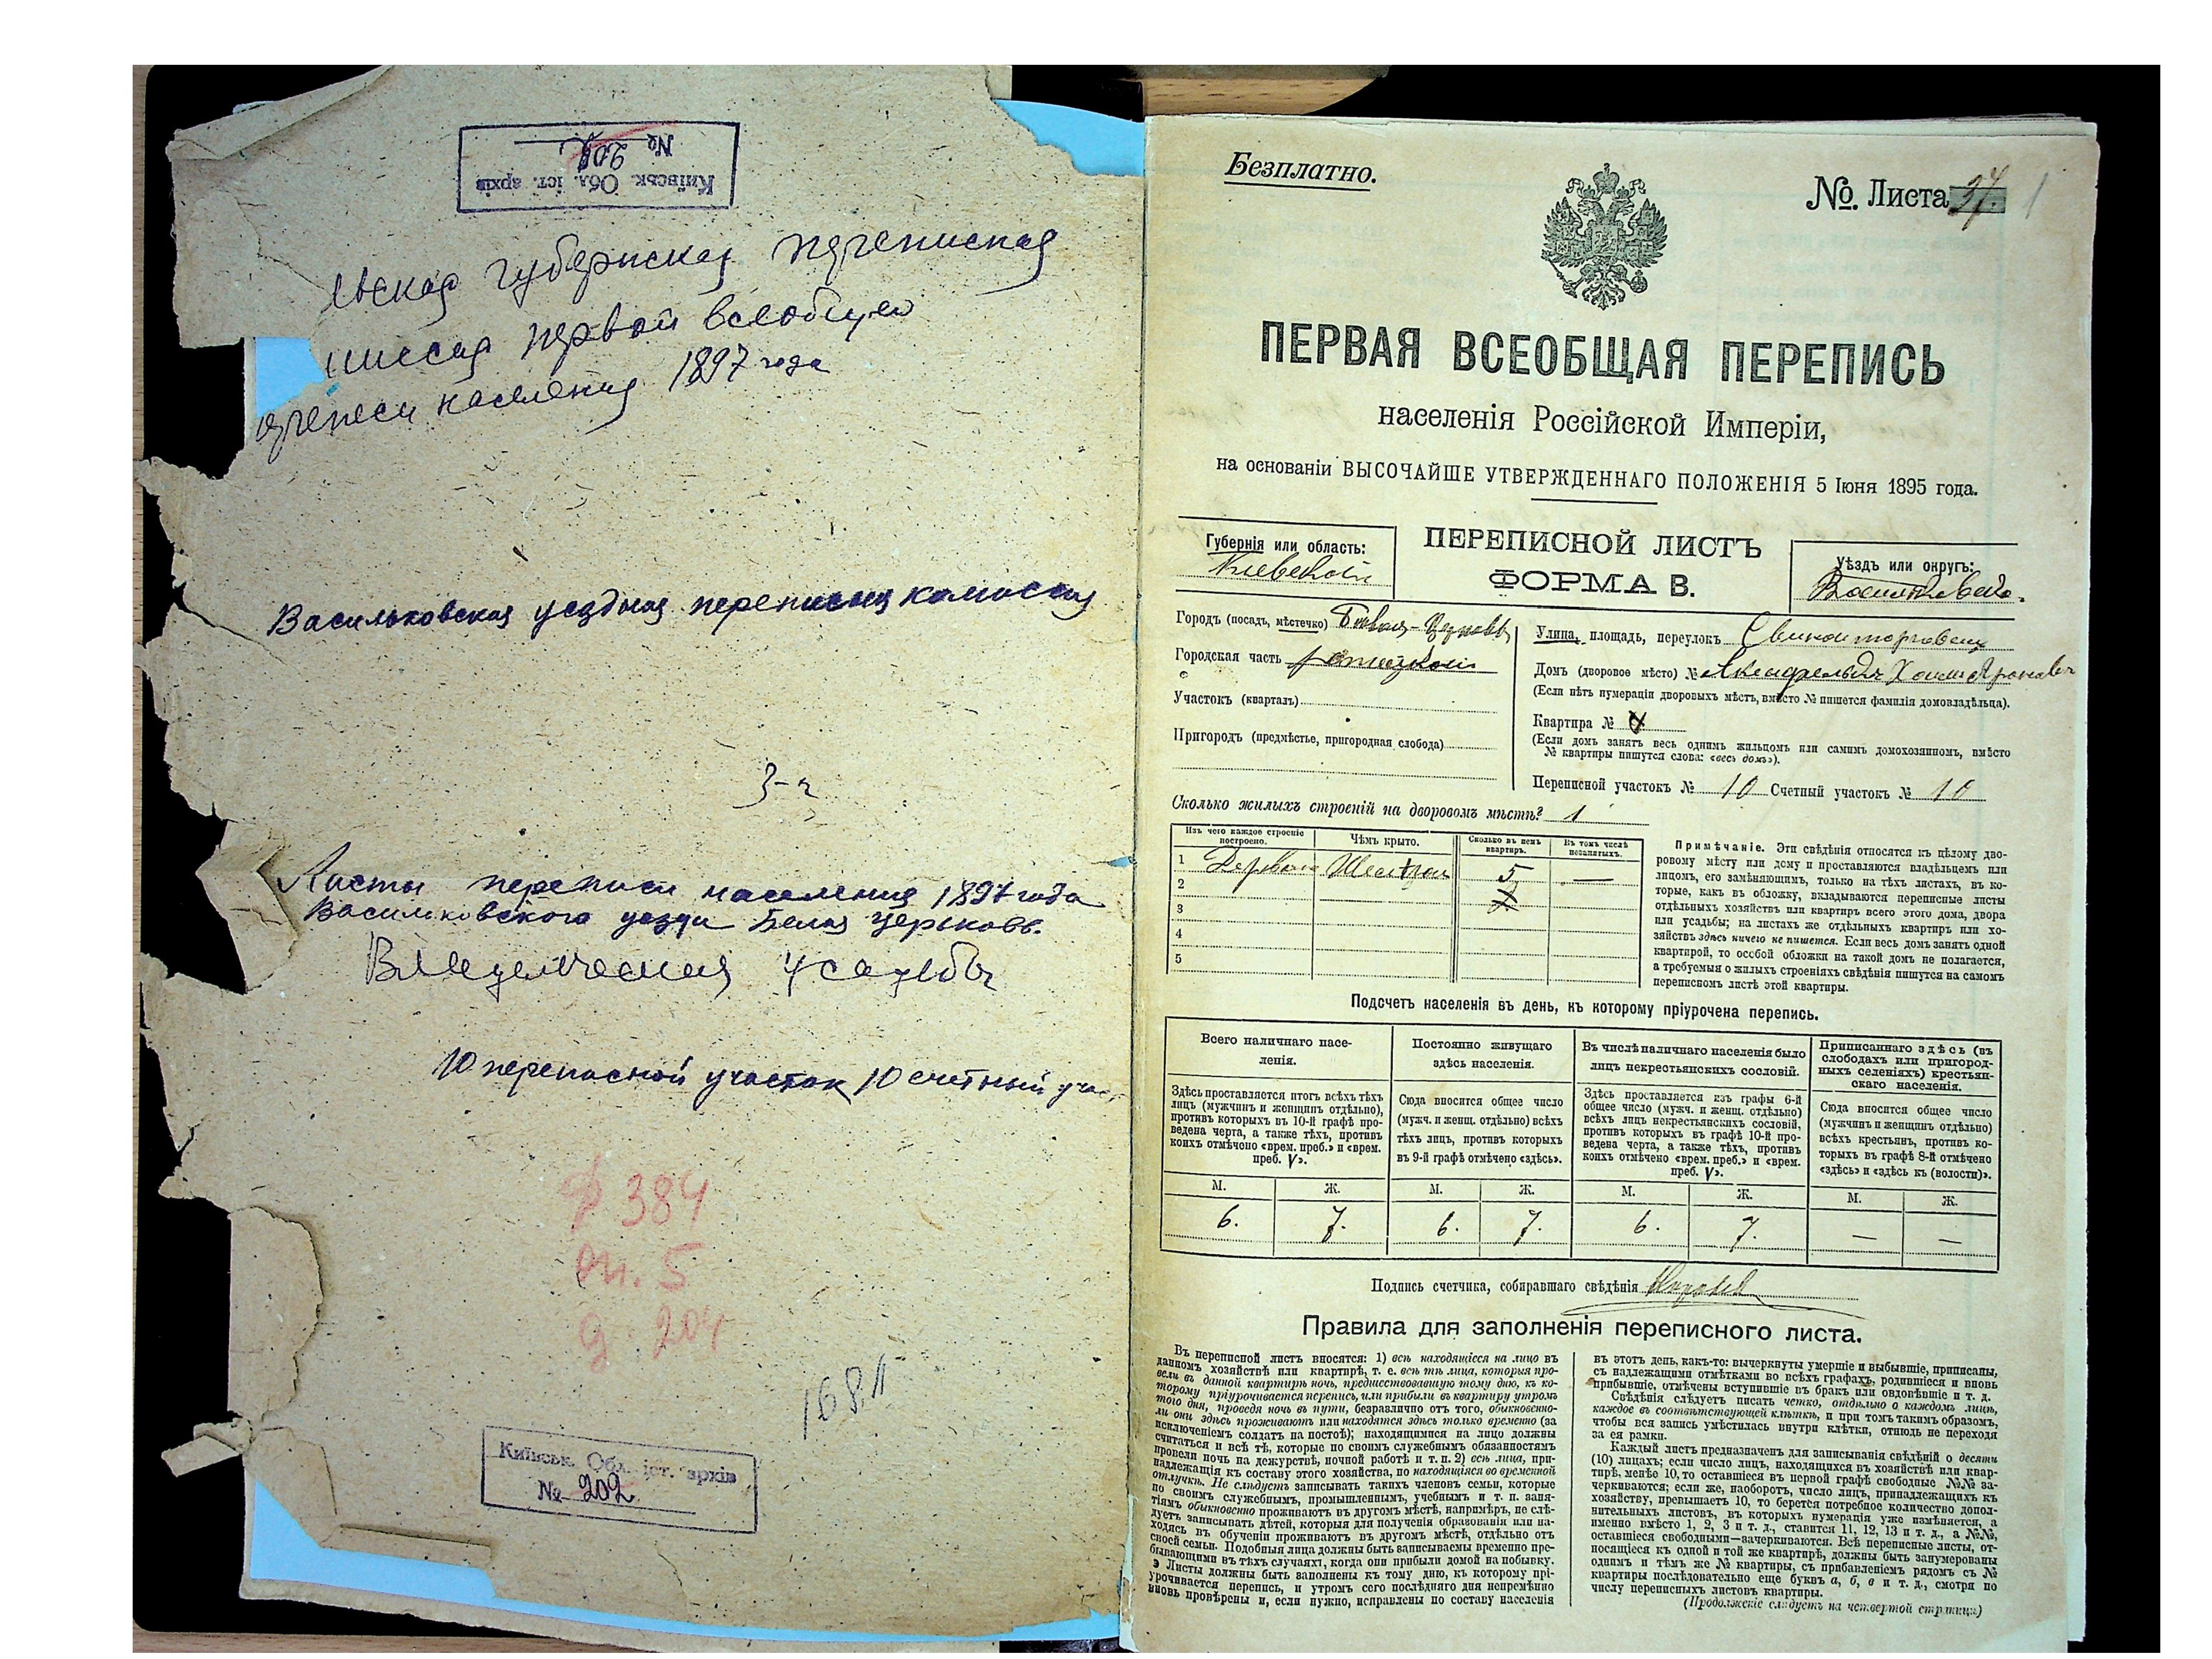 Київськ. Обл. іст. архів
№ 202
губернская переписная
первой всеобщей
населения 1897 года
Васильковская уездная переписная комиссия
Листы переписи населения 1897 года
Васильковского уезда Белая Церковь.
Владельческая усадьба
10 переписной участок 10 счетный учас
ф 384
оп. 5
д. 204
168 л
Київськ. Обл. іст. архів
№ 202
Безплатно.
№. Листа 37. 1
ПЕРВАЯ ВСЕОБЩАЯ ПЕРЕПИСЬ
населенія Россійской Имперіи,
на основаніи ВЫСОЧАЙШЕ УТВЕРЖДЕННАГО ПОЛОЖЕНІЯ 5 Іюня 1895 года.
Губернія или область:
Кіевской
ПЕРЕПИСНОЙ ЛИСТЪ
ФОРМА В.
Уѣздъ или округъ:
Городъ (посадъ, мѣстечко) Бѣлая-Церковь
Городская часть
Участокъ (кварталъ)
Пригородъ (предмѣстье, пригородная слобода)
Улица, площадь, переулокъ
Домъ (дворовое мѣсто) №
(Если нѣтъ нумераціи дворовыхъ мѣстъ, вмѣсто № пишется фамилія домовладѣльца).
Квартира №
(Если домъ занятъ весь однимъ жильцомъ или самимъ домохозяиномъ, вмѣсто
№ квартиры пишутся слова: «весь домъ»).
Переписной участокъ № 10 Счетный участокъ № 10
Сколько жилыхъ строеній на дворовомъ мѣстѣ? 1
Изъ чего каждое строеніе построено.
Чѣмъ крыто.
Сколько въ немъ квартиръ.
Въ томъ числѣ незанятыхъ.
1 5 —
2
3
4
5
Примѣчаніе. Эти свѣдѣнія относятся къ цѣлому дво-
ровому мѣсту или дому и проставляются владѣльцемъ или
лицомъ, его замѣняющимъ, только на тѣхъ листахъ, въ ко-
торые, какъ въ обложку, вкладываются переписные листы
отдѣльныхъ хозяйствъ или квартиръ всего этого дома, двора
или усадьбы; на листахъ же отдѣльныхъ квартиръ или хо-
зяйствъ здѣсь ничего не пишется. Если весь домъ занятъ одной
квартирой, то особой обложки на такой домъ не полагается,
а требуемыя о жилыхъ строеніяхъ свѣдѣнія пишутся на самомъ
переписномъ листѣ этой квартиры.
Подсчетъ населенія въ день, къ которому пріурочена перепись.
Всего наличнаго насе-
ленія.
Здѣсь проставляется итогъ всѣхъ тѣхъ
лицъ (мужчинъ и женщинъ отдѣльно),
противъ которыхъ въ 10-й графѣ про-
ведена черта, а также тѣхъ, противъ
коихъ отмѣчено «врем. преб.» и «врем.
преб. V».
Постоянно живущаго
здѣсь населенія.
Сюда вносится общее число
(мужч. и женщ. отдѣльно) всѣхъ
тѣхъ лицъ, противъ которыхъ
въ 9-й графѣ отмѣчено «здѣсь».
Въ числѣ наличнаго населенія было
лицъ некрестьянскихъ сословій.
Здѣсь проставляется изъ графы 6-й
общее число (мужч. и женщ. отдѣльно)
всѣхъ лицъ некрестьянскихъ сословій,
противъ которыхъ въ графѣ 10-й про-
ведена черта, а также тѣхъ, противъ
коихъ отмѣчено «врем. преб.» и «врем.
преб. V».
Приписаннаго здѣсь (въ
слободахъ или пригород-
ныхъ селеніяхъ) крестьян-
скаго населенія.
Сюда вносится общее число
(мужчинъ и женщинъ отдѣльно)
всѣхъ крестьянъ, противъ ко-
торыхъ въ графѣ 8-й отмѣчено
«здѣсь» и «здѣсь къ (волости)».
М. Ж. М. Ж. М. Ж. М. Ж.
6. 7. 6. 7. 6. 7. — —
Подпись счетчика, собиравшаго свѣдѣнія
Правила для заполненія переписного листа.
Въ переписной листъ вносятся: 1) всѣ находящіеся на лицо въ
данномъ хозяйствѣ или квартирѣ, т. е. всѣ тѣ лица, которыя про-
вели въ данной квартирѣ ночь, предшествовавшую тому дню, къ ко-
торому пріурочивается перепись, или прибыли въ квартиру утромъ
того дня, проведя ночь въ пути, безразлично отъ того, обыкновенно-
ли они здѣсь проживаютъ или находятся здѣсь только временно (за
исключеніемъ солдатъ на постоѣ); находящимися на лицо должны
считаться и всѣ тѣ, которые по своимъ служебнымъ обязанностямъ
провели ночь на дежурствѣ, ночной работѣ и т. п. 2) всѣ лица, при-
надлежащія къ составу этого хозяйства, но находящіяся во временной
отлучкѣ. Не слѣдуетъ записывать такихъ членовъ семьи, которые
по своимъ служебнымъ, промышленнымъ, учебнымъ и т. п. заня-
тіямъ обыкновенно проживаютъ въ другомъ мѣстѣ, напримѣръ, не слѣ-
дуетъ записывать дѣтей, которыя для полученія образованія или на-
ходясь въ обученіи проживаютъ въ другомъ мѣстѣ, отдѣльно отъ
своей семьи. Подобныя лица должны быть записываемы временно пре-
бывающими въ тѣхъ случаяхъ, когда они прибыли домой на побывку.
Листы должны быть заполнены къ тому дню, къ которому прі-
урочивается перепись, и утромъ сего послѣдняго дня непремѣнно
вновь провѣрены и, если нужно, исправлены по составу населенія
въ этотъ день, какъ-то: вычеркнуты умершіе и выбывшіе, приписаны,
съ надлежащими отмѣтками во всѣхъ графахъ, родившіеся и вновь
прибывшіе, отмѣчены вступившіе въ бракъ или овдовѣвшіе и т. д.
Свѣдѣнія слѣдуетъ писать четко, отдѣльно о каждомъ лицѣ,
каждое въ соотвѣтствующей клѣткѣ, и при томъ такимъ образомъ,
чтобы вся запись умѣстилась внутри клѣтки, отнюдь не переходя
за ея рамки.
Каждый листъ предназначенъ для записыванія свѣдѣній о десяти
(10) лицахъ; если число лицъ, находящихся въ хозяйствѣ или квар-
тирѣ, менѣе 10, то оставшіеся въ первой графѣ свободные №№ за-
черкиваются; если же, наоборотъ, число лицъ, принадлежащихъ къ
хозяйству, превышаетъ 10, то берется потребное количество допол-
нительныхъ листовъ, въ которыхъ нумерація уже измѣняется, а
именно вмѣсто 1, 2, 3 и т. д., ставится 11, 12, 13 и т. д., а №№,
оставшіеся свободными—зачеркиваются. Всѣ переписные листы, от-
носящіеся къ одной и той же квартирѣ, должны быть занумерованы
однимъ и тѣмъ же № квартиры, съ прибавленіемъ рядомъ съ №
квартиры послѣдовательно еще буквъ а, б, в и т. д., смотря по
числу переписныхъ листовъ квартиры.
(Продолженіе слѣдуетъ на четвертой страницѣ)